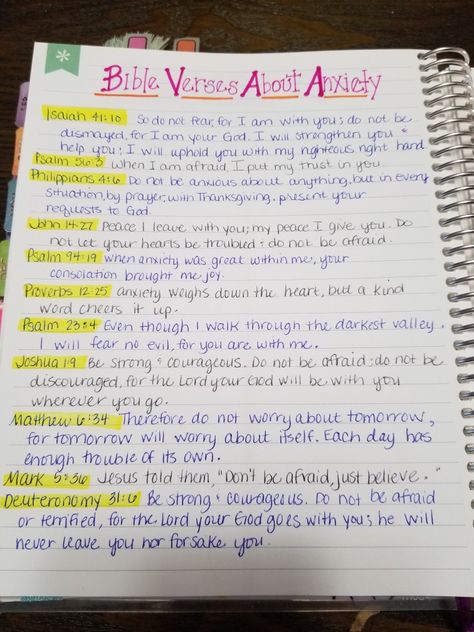 BIBLE VERSES ABOUT ANXIETY
Isaiah 41:10 So do not fear, for I am with you; do not be
dismayed, for I am your God. I will strengthen you &
help you; I will uphold you with my righteous right hand
Psalm 56:3 when I am afraid, I put my trust in you.
Philippians 4:6 Do not be anxious about anything, but in every
situation, by prayer, with Thanksgiving, present your
requests to God.
John 14:27 Peace I leave with you; my peace I give you. Do
not let your hearts be troubled & do not be afraid.
Psalm 94:19 when anxiety was great within me, your
consolation brought me joy.
Proverbs 12:25 anxiety weighs down the heart, but a kind
word cheers it up.
Psalm 23:4 Even though I walk through the darkest valley,
I will fear no evil, for you are with me.
Joshua 1:9 Be strong & courageous. Do not be afraid; do not be
discouraged, for the Lord your God will be with you
wherever you go.
Matthew 6:34 Therefore do not worry about tomorrow,
for tomorrow will worry about itself. Each day has
enough trouble of its own.
Mark 5:36 Jesus told them, "Don't be afraid, just believe."
Deuteronomy 31:6 Be strong & courageous. Do not be afraid
or terrified, for the Lord your God goes with you; he will
never leave you nor forsake you.